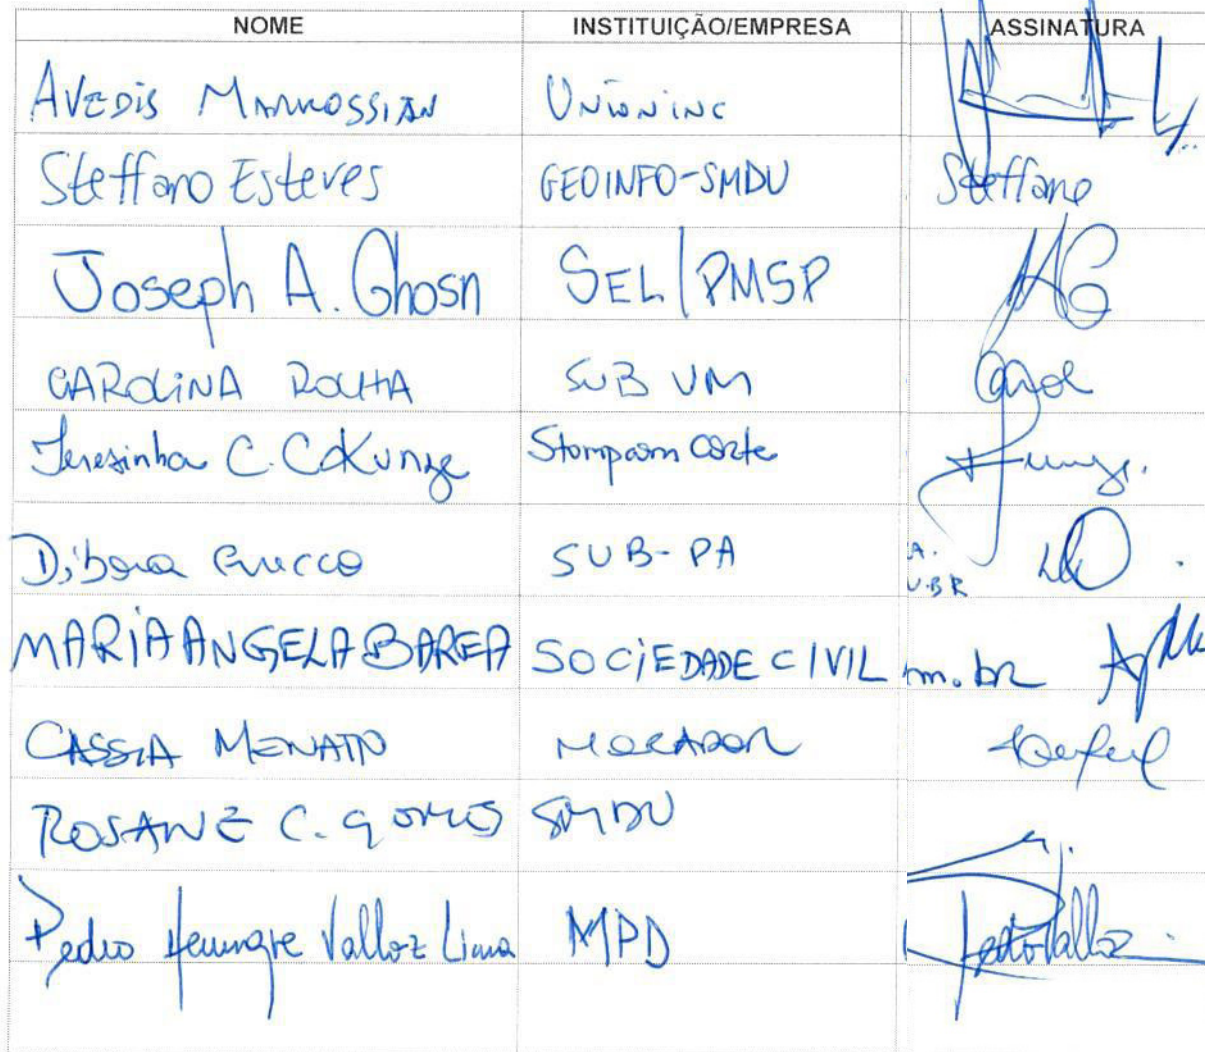 NOME INSTITUIÇÃO/EMPRESA ASSINATURA
AVEDIS MARKOSSIAN UNIONINC
Steffano Esteves GEOINFO-SMDU Steffano
Joseph A. Ghosn SEL/PMSP
CAROLINA ROCHA SUB VM Carol
Teresinha C. Stompam Corte
Débora SUB-PA
MARIA ANGELA BAREA SOCIEDADE CIVIL m.br
CASSIA MORADOR
ROSANE C. GOMES SMDU
Pedro Henrique Valloz Lima MPD Pedro Valloz